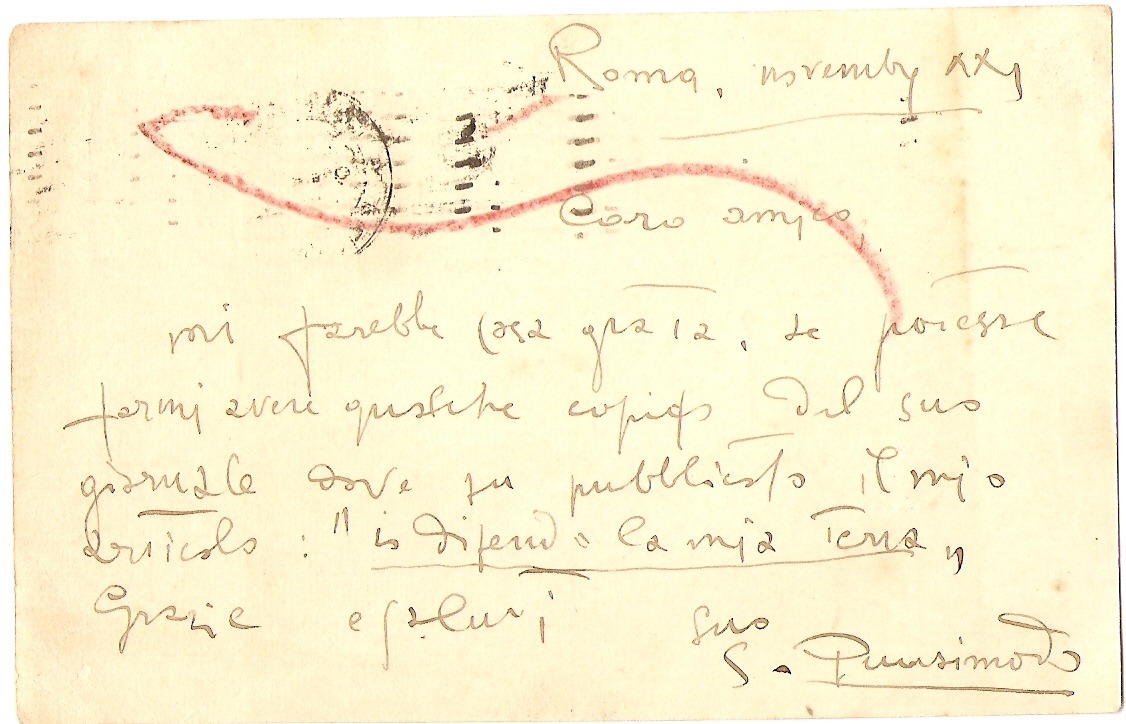 Roma, novembre XXI
Caro amico,
mi farebbe cosa grata, se potesse
farmi avere qualche copia del suo
giornale dove fu pubblicato il mio
articolo: "io difendo la mia terra"
Grazie e saluti suo
S.